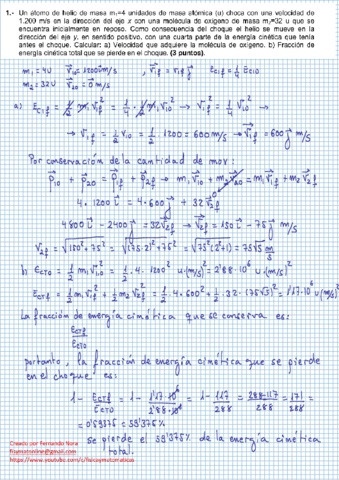 1.- Un átomo de helio de masa m₁=4 unidades de masa atómica (u) choca con una velocidad de
1.200 m/s en la dirección del eje x con una molécula de oxígeno de masa m₂=32 u que se
encuentra inicialmente en reposo. Como consecuencia del choque el helio se mueve en la
dirección del eje y, en sentido positivo, con una cuarta parte de la energía cinética que tenía
antes el choque. Calcular: a) Velocidad que adquiere la molécula de oxígeno. b) Fracción de
energía cinética total que se pierde en el choque. (3 puntos).
m₁ = 4u V⃗₁₀ = 1200 i⃗ m/s , V⃗₁f = V₁f j⃗ E_C1f = 1/4 E_C10
m₂ = 32u V⃗₂₀ = 0⃗ m/s
a) E_C1f = 1/2 m₁ V₁f² = 1/4 · 1/2 m₁ V₁₀² → V₁f² = 1/4 V₁₀² →
→ V₁f = 1/2 V₁₀ = 1/2 · 1200 = 600 m/s → V⃗₁f = 600 j⃗ m/s
Por conservación de la cantidad de mov:
P⃗₁₀ + P⃗₂₀ = P⃗₁f + P⃗₂f → m₁V⃗₁₀ + m₂V⃗₂₀ = m₁V⃗₁f + m₂V⃗₂f
4 · 1200 i⃗ = 4 · 600 j⃗ + 32 V⃗₂f
4800 i⃗ - 2400 j⃗ = 32 V⃗₂f → V⃗₂f = 150 i⃗ - 75 j⃗ m/s
V₂f = √(150² + 75²) = √((75·2)² + 75²) = √(75²(2²+1)) = 75√5 m/s
b) E_CT0 = 1/2 m₁ V₁₀² = 1/2 · 4 · 1200² u·(m/s)² = 2'88·10⁶ u·(m/s)²
E_CTf = 1/2 m₁ V₁f² + 1/2 m₂ V₂f² = 1/2 · 4 · 600² + 1/2 · 32 · (75√5)² = 1'17·10⁶ u(m/s)²
La fracción de energía cinética que se conserva es:
E_CTf/E_CT0
portanto, la fracción de energía cinética que se pierde
en el choque es:
1 - E_CTf/E_CT0 = 1 - 1'17·10⁶/2'88·10⁶ = 1 - 117/288 = (288-117)/288 = 171/288 =
= 0'59375 = 59'375%
se pierde el 59'375% de la energía cinética
total.
Creado por Fernando Nora
fizamatonline@gmail.com